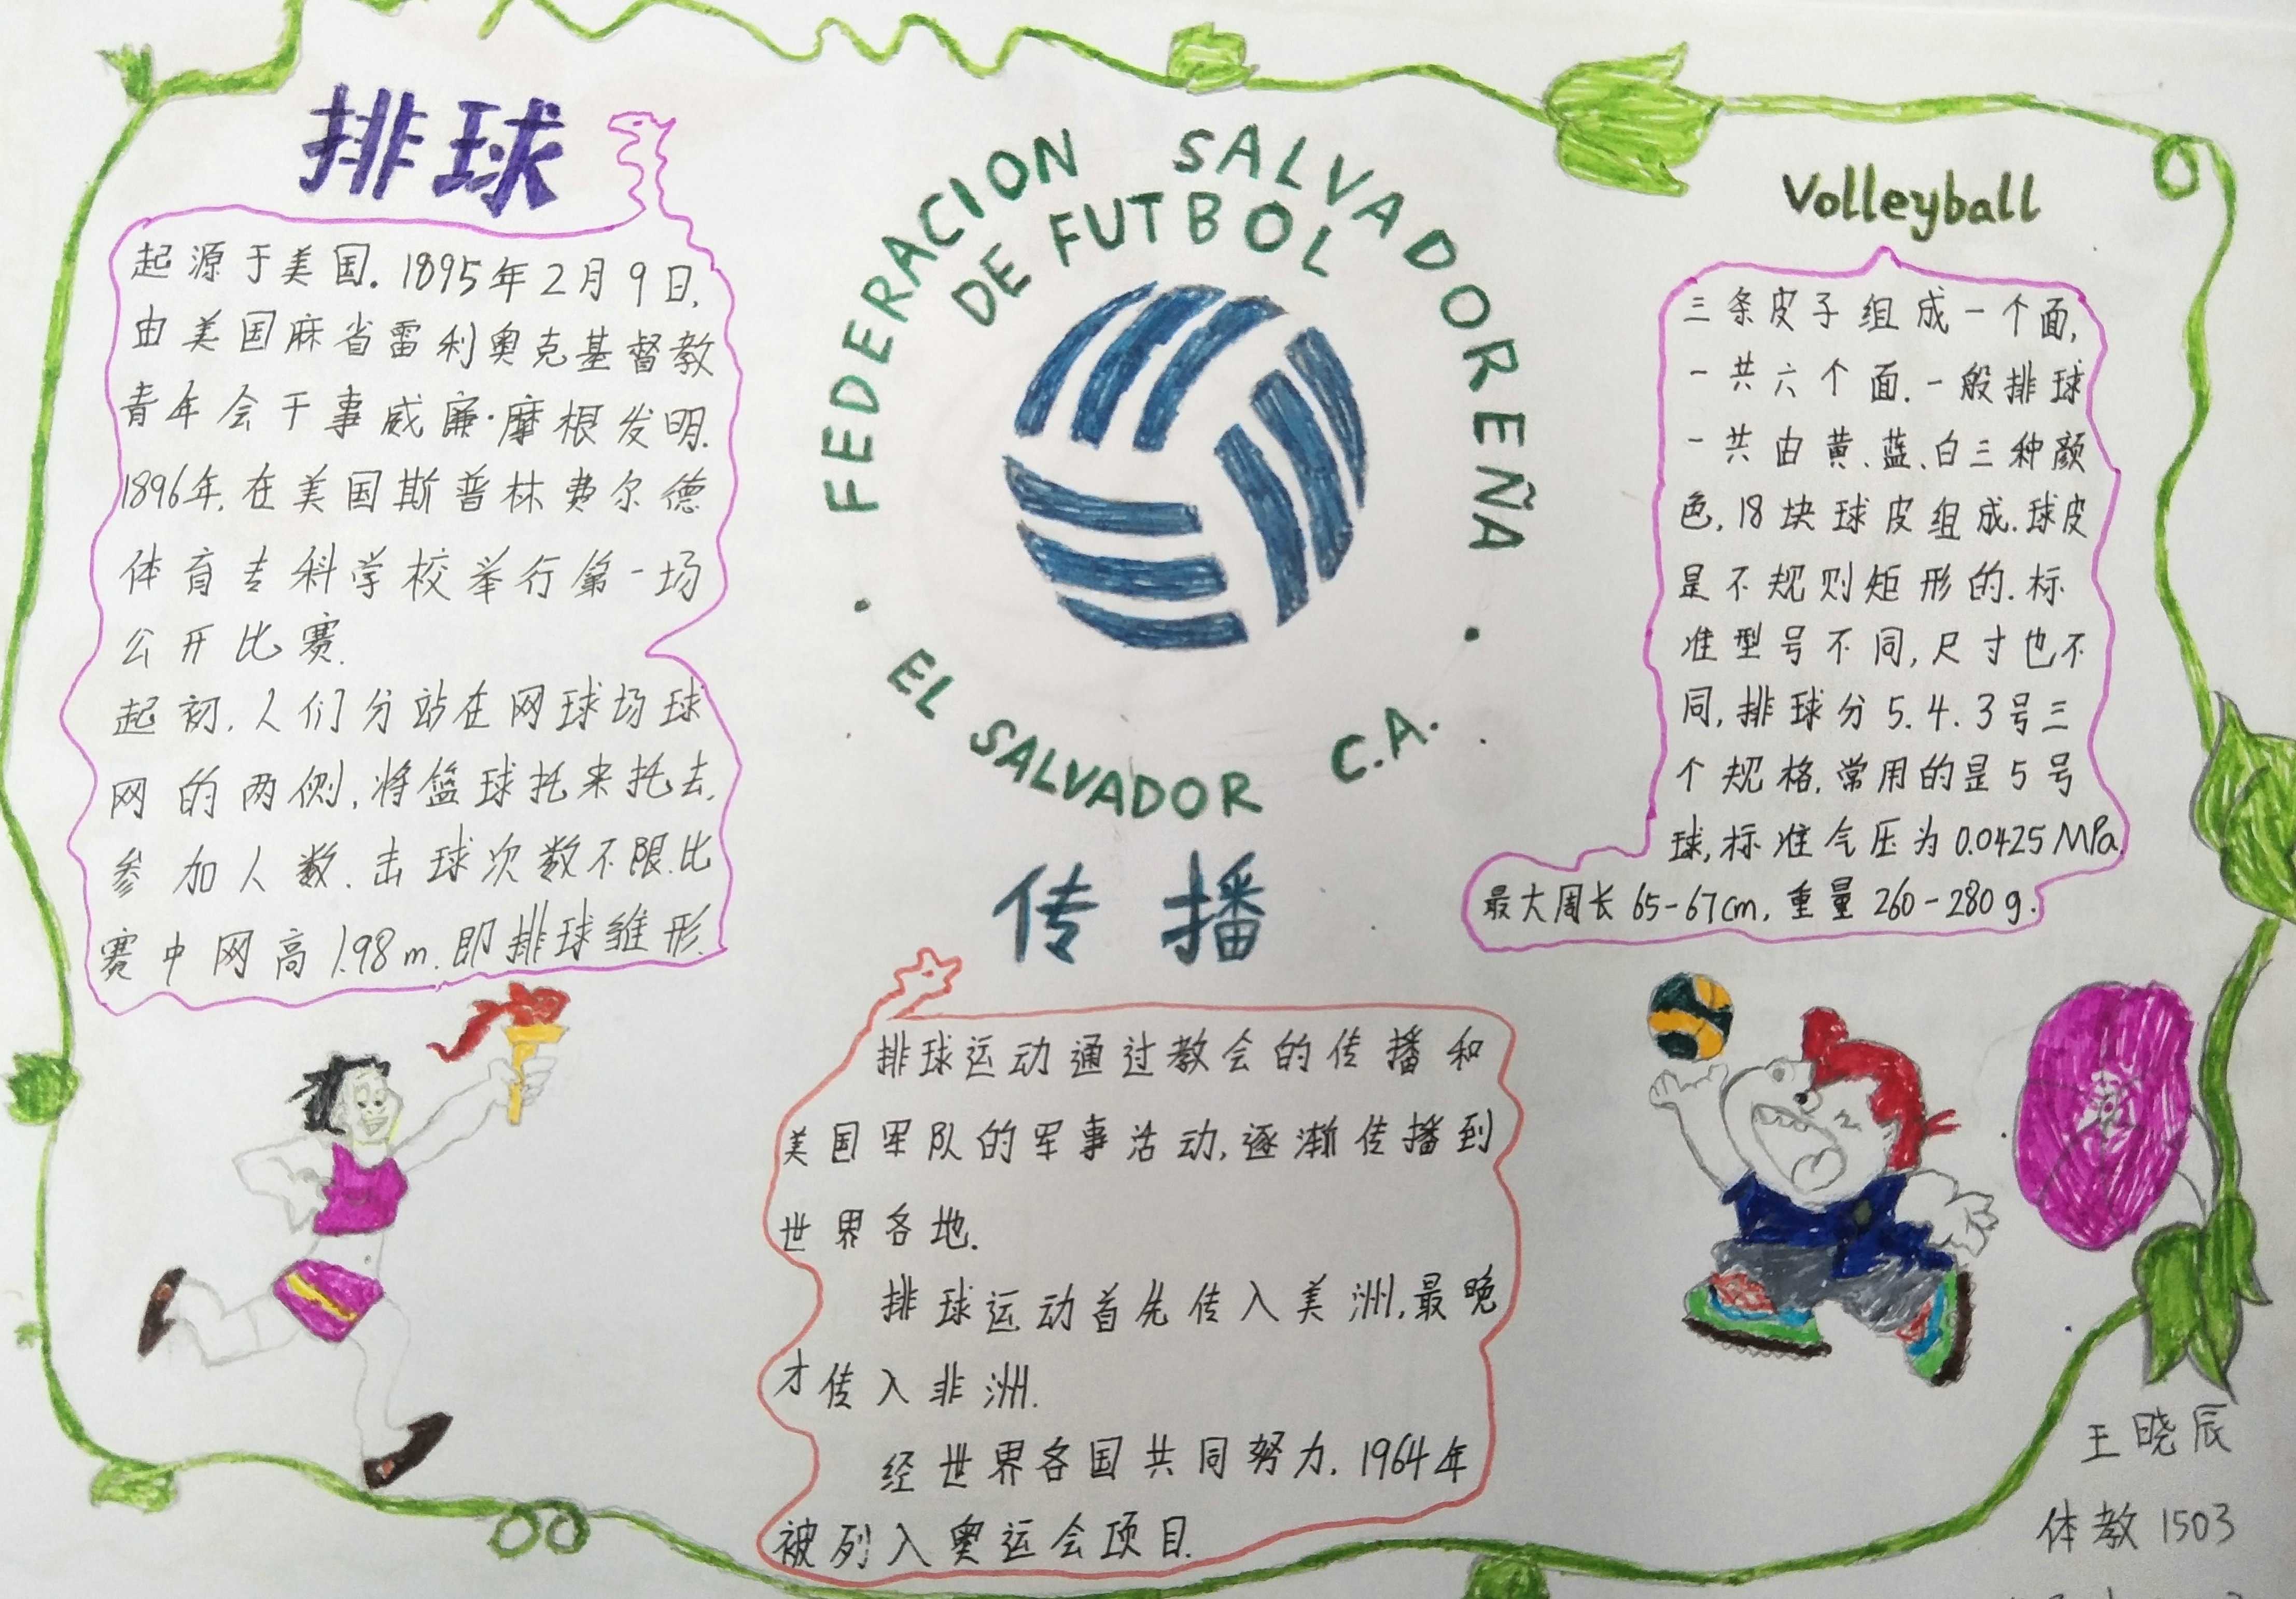 排球
起源于美国.1895年2月9日,
由美国麻省雷利奥克基督教
青年会干事威廉·摩根发明.
1896年,在美国斯普林费尔德
体育专科学校举行第一场
公开比赛.
起初,人们分站在网球场球
网的两侧,将篮球托来托去,
参加人数.击球次数不限.比
赛中网高1.98m.即排球雏形.
FEDERACION SALVADOREÑA
DE FUTBOL
· EL SALVADOR C.A. ·
传播
排球运动通过教会的传播和
美国军队的军事活动,逐渐传播到
世界各地.
排球运动首先传入美洲,最晚
才传入非洲.
经世界各国共同努力,1964年
被列入奥运会项目.
Volleyball
三条皮子组成一个面,
一共六个面.一般排球
一共由黄、蓝、白三种颜
色,18块球皮组成.球皮
是不规则矩形的.标
准型号不同,尺寸也不
同,排球分5.4.3号三
个规格,常用的是5号
球,标准气压为0.0425MPa.
最大周长65-67cm,重量260-280g.
王晓辰
体教1503